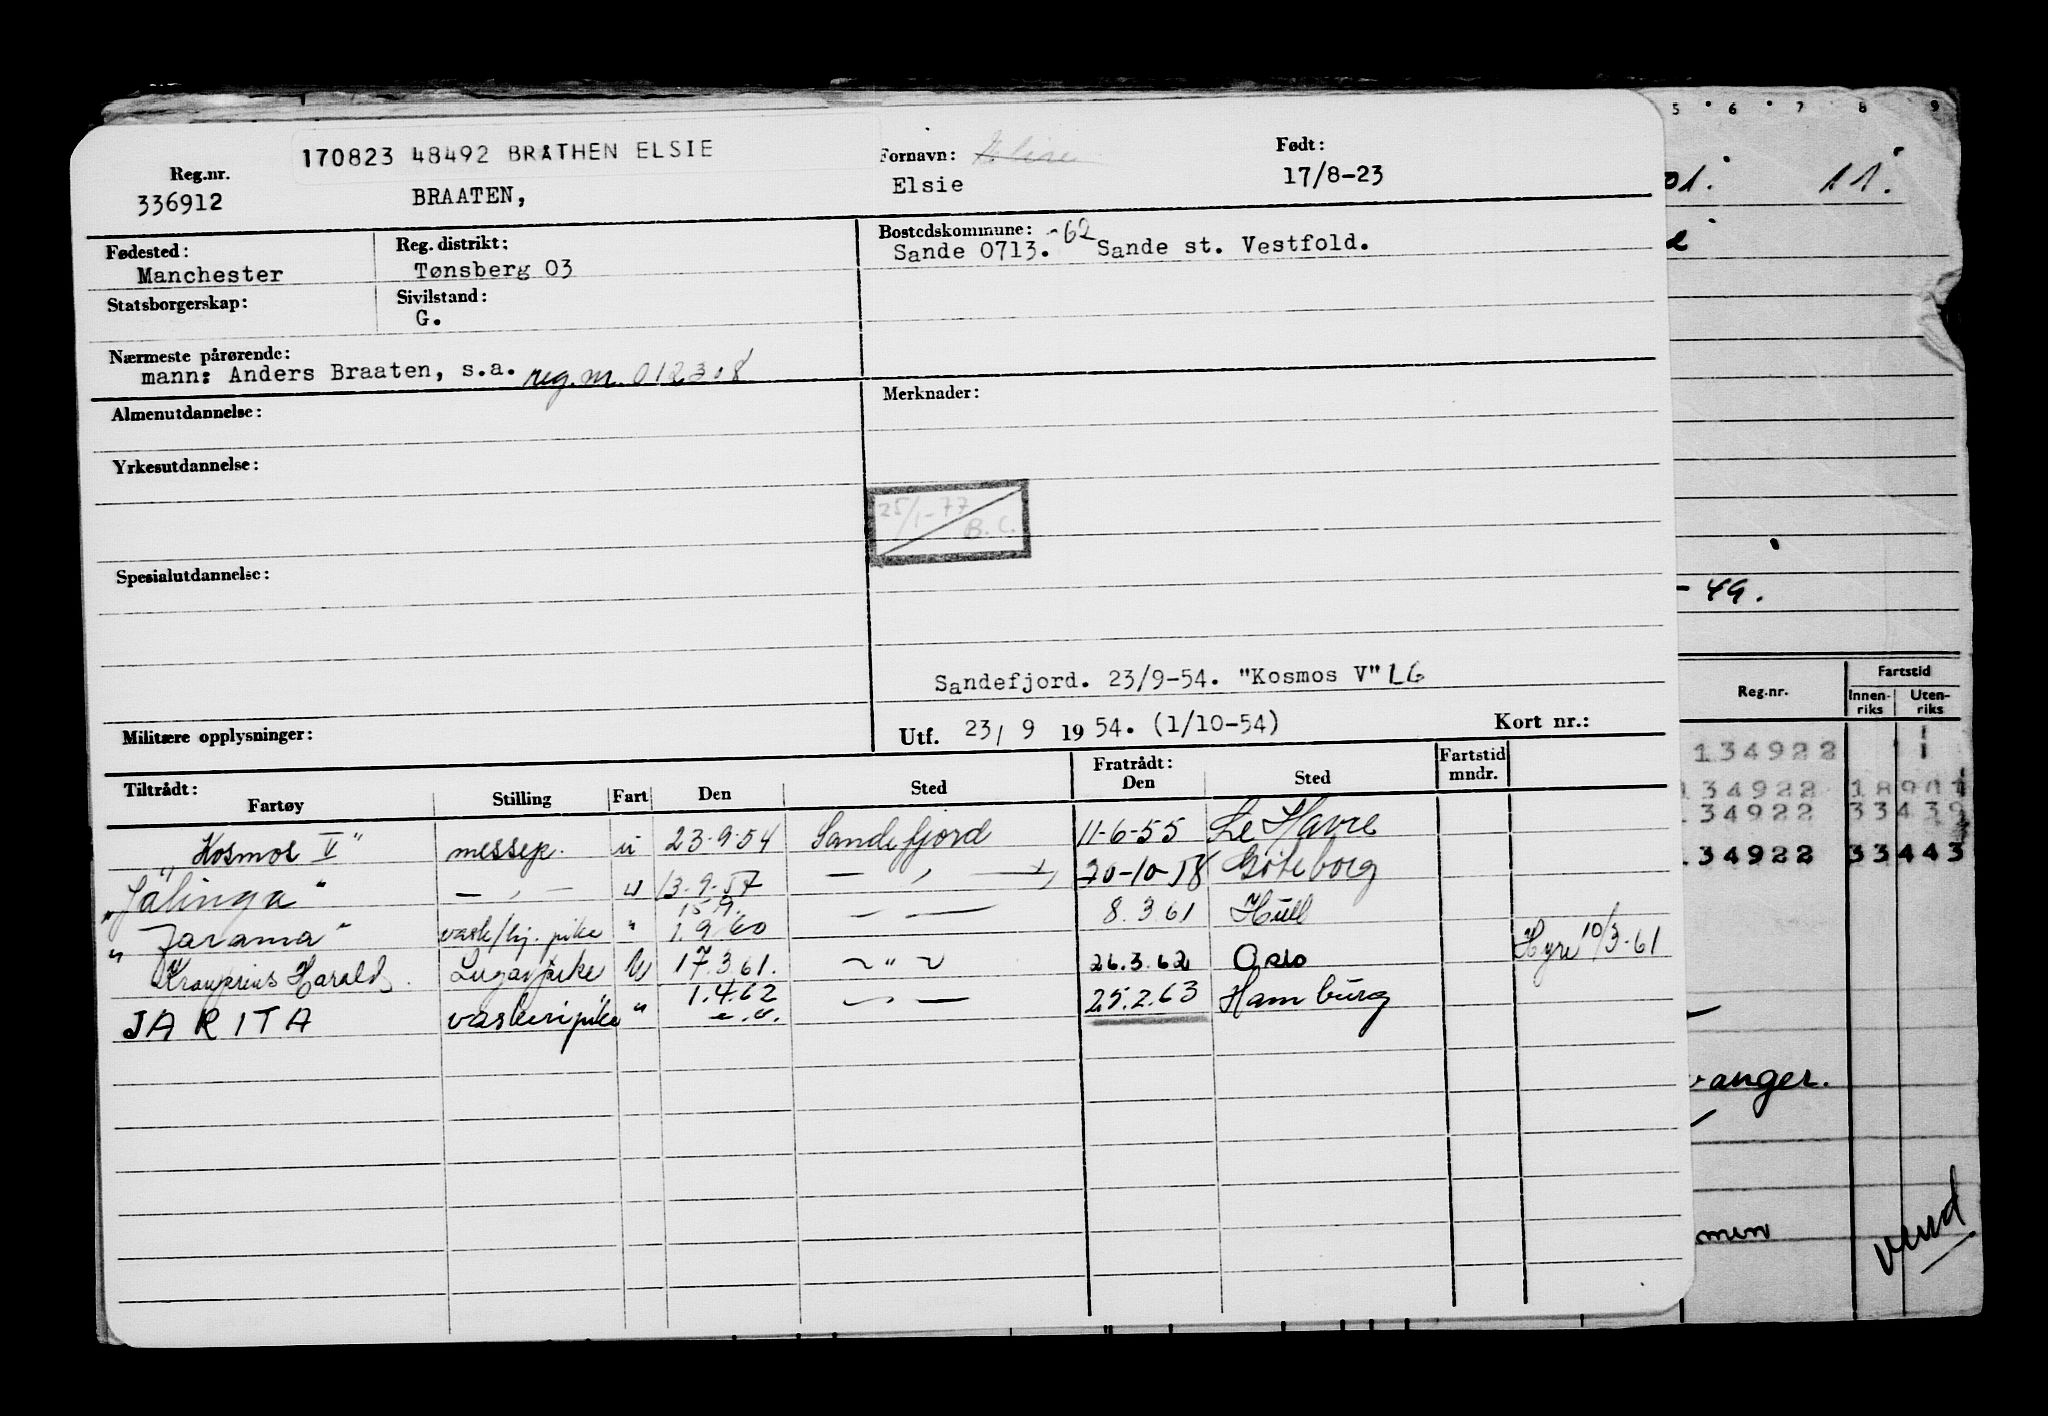 170823 48492 BRÅTHEN ELSIE
Reg.nr. 336912
BRAATEN,
Fornavn: Elsie
Født: 17/8-23
Fødested: Manchester
Reg. distrikt: Tønsberg 03
Bostedskommune: -62
Sande 0713. Sande st. Vestfold.
Statsborgerskap:
Sivilstand: G.
Nærmeste pårørende:
mann: Anders Braaten, s.a. reg.nr. 012308
Almenutdannelse:
Merknader:
Yrkesutdannelse:
25/1-77
B.C.
Spesialutdannelse:
Sandefjord. 23/9-54. "Kosmos V" LG
Militære opplysninger:
Utf. 23/ 9 1954. (1/10-54) Kort nr.:
Tiltrådt: Fratrådt: Fartstid mndr.
Fartøy Stilling Fart Den Sted Den Sted
"Kosmos V" messep. u 23-9-54 Sandefjord 11-6-55 Le Havre
"Jalinga" — , — u 13-9-57 — , — 20-10-58 Göteborg
15.9.
"Jarama" vask/hj. pike " 1.9.60 — — 8.3.61 Hull
Kronprins Harald Lugarpike U 17.3.61. ~ " ~ 26.3.62 Oslo Hyre 10/3-61
JARITA vaskeripike " 1.4.62 — , — 25.2.63 Hamburg
5 6 7 8 9
01. 11.
- 49.
Reg.nr. Fartstid
Innen-riks Uten-riks
134922 1
134922 18901
134922 33439
134922 33443
vanger.
men
vend